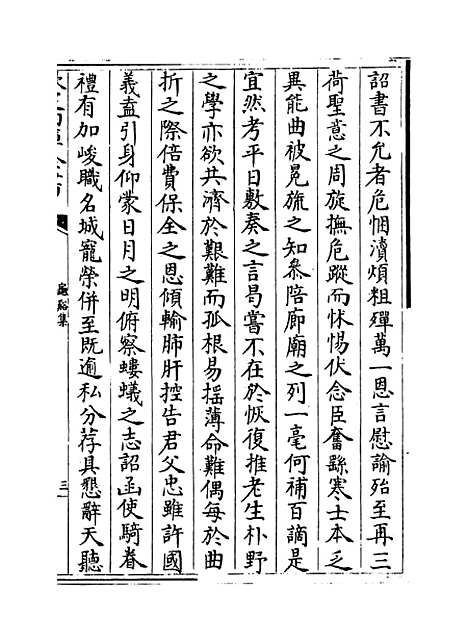 詔書不允者危悃瀆煩粗殫萬一恩言慰諭殆至再三
荷聖慈之周旋撫危蹤而怵惕伏念臣奮繇寒士本乏
異能曲被冕旒之知叅陪廊廟之列一毫何補百謫是
宜然考平日敷奏之言曷嘗不在於恢復推老生朴野
之學亦欲共濟於艱難而孤根易揺薄命難偶每於曲
折之際倍費保全之恩傾輸肺肝控告君父忠雖許國
義盍引身仰蒙日月之明俯察螻蟻之志詔函使騎眷
禮有加峻職名城寵榮併至既逾私分荐具懇辭天聽
三